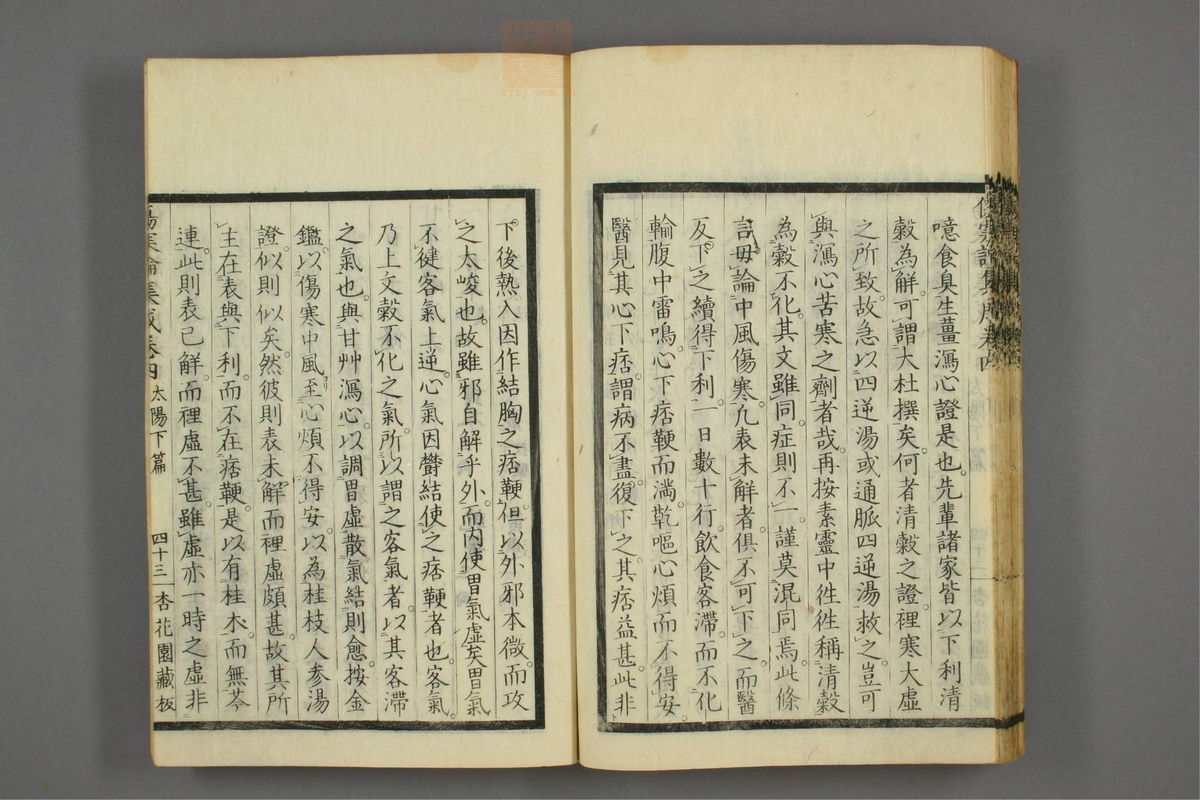 噫食臭生薑瀉心證是也先輩諸家皆以下利清
穀為解可謂大杜撰矣何者清穀之證裡寒大虛
之所致故急以四逆湯或通脈四逆湯救之豈可
與瀉心苦寒之劑者哉再按素靈中徃徃稱清穀
為穀不化其文雖同症則不一謹莫混同焉此條
訊毋論中風傷寒凡表未解者俱不可下之而醫
反下之續得下利一日數十行飲食客滯而不化
輪腹中雷鳴心下痞鞕而滿乾嘔心煩而不得安
醫見其心下痞謂病不盡復下之其痞益甚此非
下後熱入因作結胸之痞鞕但以外邪本微而攻
之太峻也故雖邪自解乎外而內使胃氣虛矣胃氣
不徤客氣上逆心氣因欝結使之痞鞕者也客氣
乃上文穀不化之氣所以謂之客氣者以其客滯
之氣也與甘艸瀉心以調胃虛散氣結則愈按金
鑑以傷寒中風至心煩不得安以為桂枝人參湯
證似則似矣然彼則表未解而裡虛頗甚故其所
主在表與下利而不在痞鞕是以有桂朮而無芩
連此則表已解而裡虛不甚雖虛亦一時之虛非
傷寒論集成卷四 太陽下篇 四十三 杏花園藏板